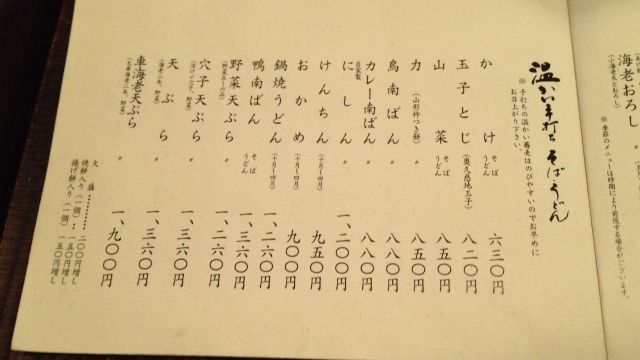 海老おろし 〃
(小海老天とおろし)
※ 季節のメニューは時期により前後する場合がございます。
温かい手打ち そば・うどん
※ 手打ちの温かい蕎麦はのびやすいのでお早めに
お召上がり下さい。
かけ そば うどん 六三〇円
玉子とじ (奥久慈地玉子) 八二〇円
山菜 そば うどん 八五〇円
力 (山形杵つき餅) 〃 八五〇円
鳥南ばん 〃 八八〇円
カレー南ばん 〃 八八〇円
自家製 にしん 〃 一、二〇〇円
けんちん (十月〜四月) 九五〇円
おかめ 九〇〇円
鍋焼うどん (十月〜四月) 一、二六〇円
鴨南ばん そば うどん 一、三六〇円
野菜天ぷら 〃 一、二六〇円
穴子天ぷら 〃 一、三六〇円
天ぷら 〃 一、三六〇円
(海老二本、野菜)
車海老天ぷら 〃 一、九〇〇円
大盛 二〇〇円増し
焼餅入り(一個) 一五〇円増し
揚げ餅入り(一個) 一五〇円増し